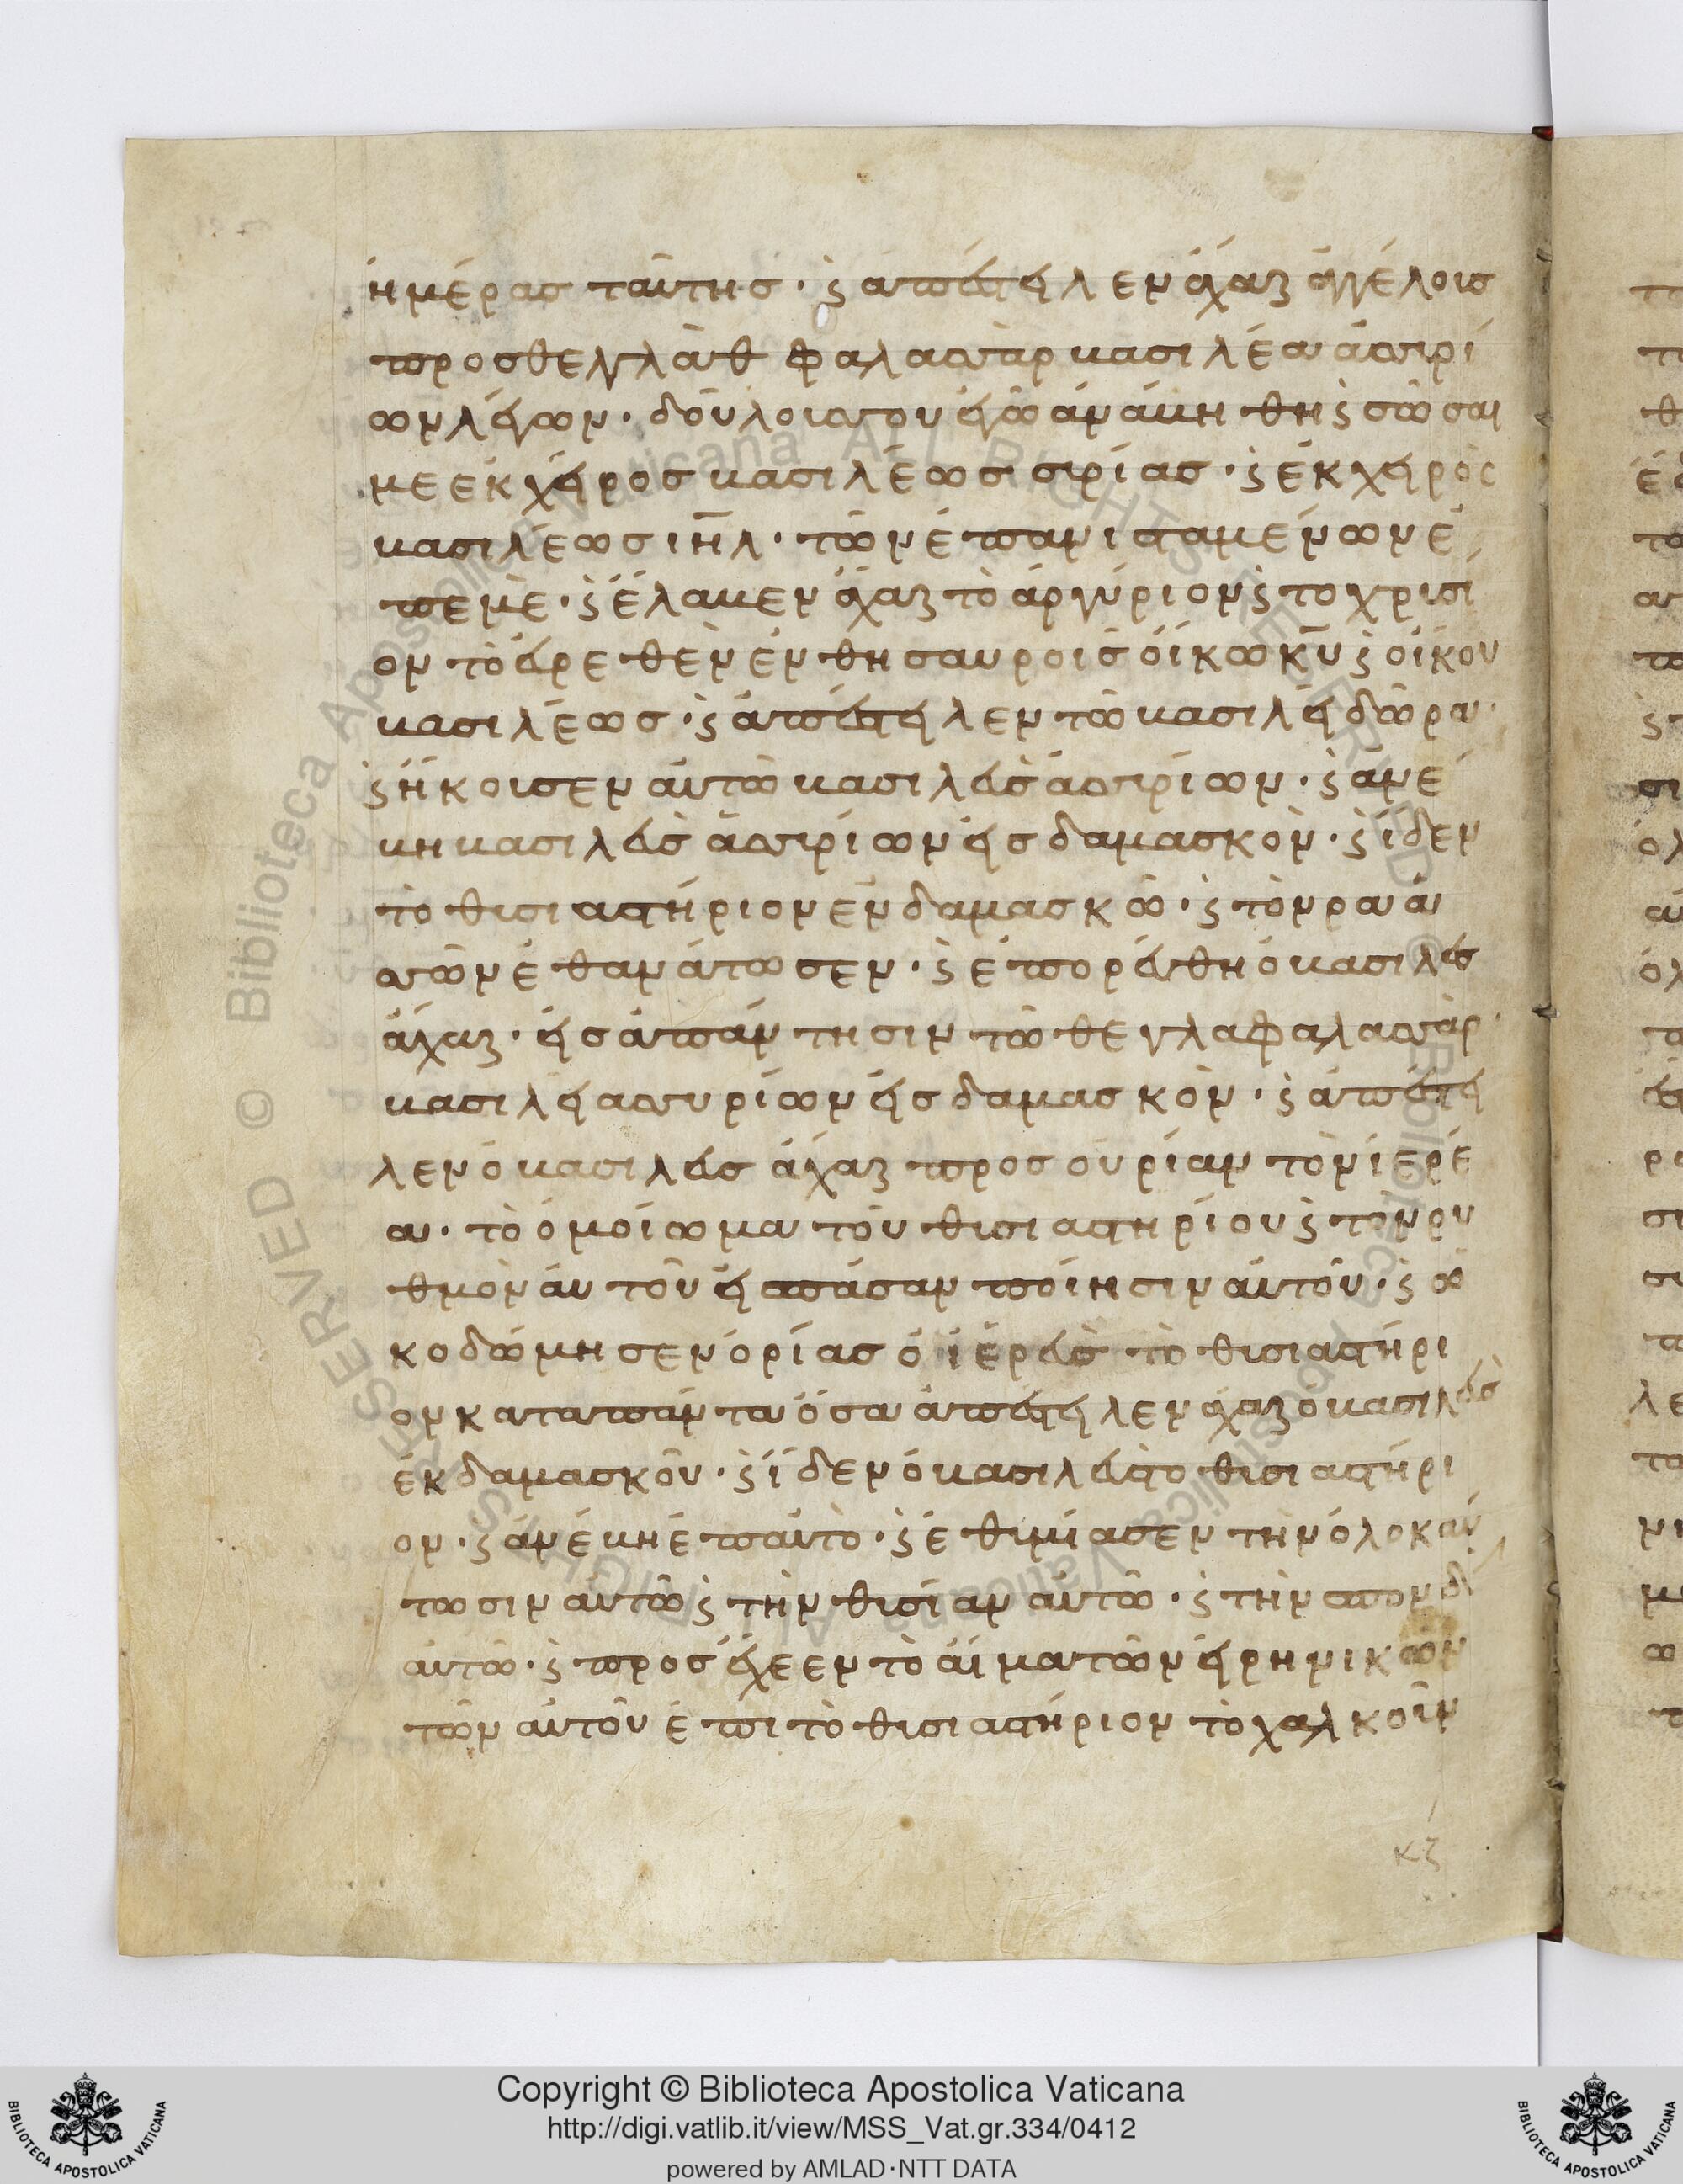 ἡμέρας ταύτης · ϗ ἀπέστειλεν ἄχαζ ἀγγέλους
προς θεγλὰθ φαλασὰρ βασιλέα ἀσυρί
ων λέγων · δοῦλος σου ἐγῶ ἀνάβηθη ϗ σῶσαι
με ἐκ χειρος βασιλέως συρίας · ϗ ἐκ χειρὸς
βασιλέως ιηλ · τῶν ἐπανισταμένων ἐ
π ἐμὲ · ϗ ἔλαβεν ἄχαζ τὸ ἀργύριον ϗ το χρυσί
ον τὸ εὑρεθὲν ἐν θησαυροις οἴκω κυ ϗ οἴκου
βασιλέως · ϗ ἀπέστειλεν τῶ βασιλεῖ δῶρα ·
ϗ ἤκουσεν αὐτῶ βασιλεὺς ἀσυρίων · ϗ ἀνέ
βη βασιλεὺς ἀσυρίων εἰς δαμασκὸν · ϗ ἴδεν
τὸ θυσιαστήριον ἐν δαμασκῶ · ϗ τὸν ραα
σῶν ἐθανάτωσεν · ϗ ἐπορεύθη ὁ βασιλεὺς
ἄχαζ · εἰς ἀπάντησιν τῶ θεγλαφαλασὰρ
βασιλεῖ ασυρίων εἰς δαμασκὸν · ϗ ἀπέστει
λεν ὁ βασιλεὺς ἄχαζ προς οὐρίαν τὸν ἱερέ
α · τὸ ὁμοίωμα τοῦ θυσιαστηρίου ϗ τὸν ρυ
θμὸν αὐτοῦ εἰς πᾶσαν ποίησιν αὐτοῦ · ϗ ὠ
κοδώμησεν ὀρίας ὁ ἱερεὺς τὸ θυσιαστήρι
ον κατα πάντα ὅσα ἀπέστειλεν ἄχαζ ὁ βασιλεὺς
ἐκ δαμασκοῦ · ϗ ἴδεν ὁ βασιλεὺς το θυσιαστήρι
ον · ϗ ἀνέβη ἐπ αὐτὸ · ϗ ἐθυμίασεν τὴν ὁλοκαύ
τωσιν αὐτῶ ϗ τὴν θυσίαν αὐτῶ · ϗ τὴν σπονδὶ
αὐτῶ · ϗ προσέχεεν τὸ αἵμα τῶν εἰρηνικῶν
τῶν αὐτοῦ ἐπι τὸ θυσιαστήριον τὸ χαλκοῦν
κζ
Copyright © Biblioteca Apostolica Vaticana
http://digi.vatlib.it/view/MSS_Vat.gr.334/0412
powered by AMLAD·NTT DATA